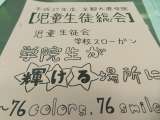 平成27年度 京都大原学院
【児童生徒総会】
児童生徒会
学校スローガン
学院生が
輝ける場所に
~76 colors, 76 smile